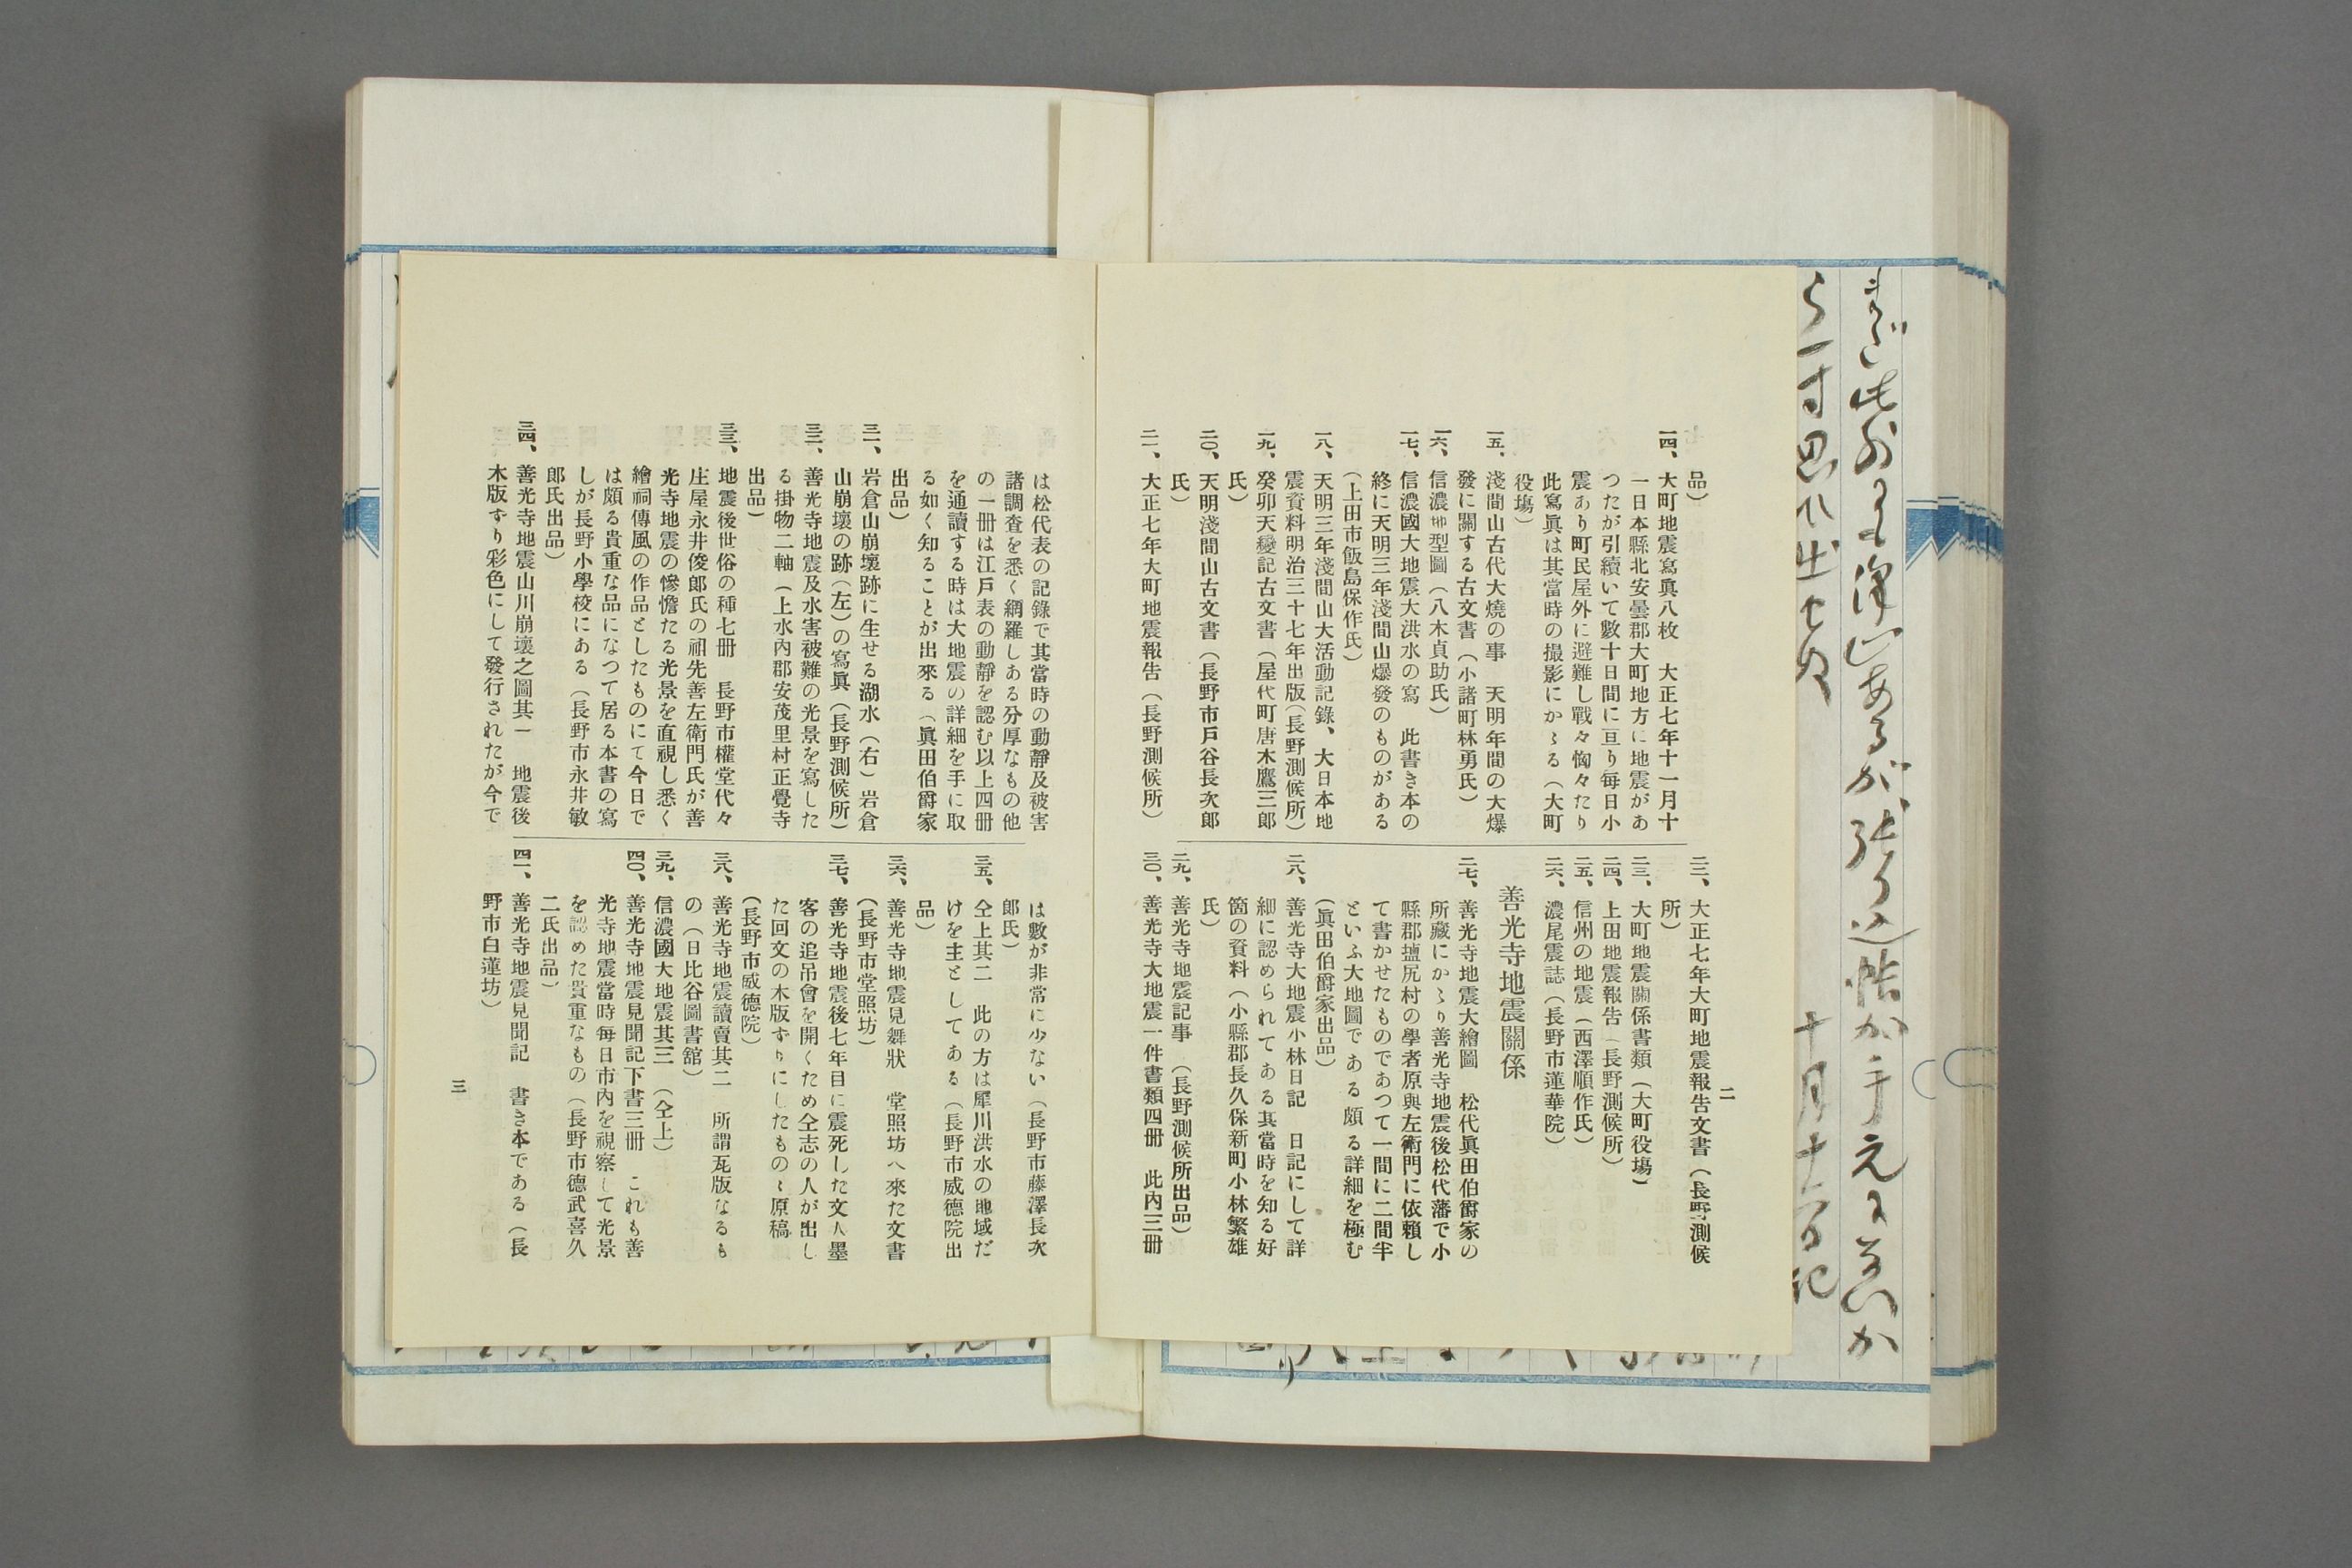 品）
一四、大町地震寫眞八枚　大正七年十一月十
一日本縣北安曇郡大町地方に地震があ
つたが引續いて數十日間に亘り毎日小
震あり町民屋外に避難し戰々恟々たり
此寫眞は其當時の撮影にかゝる（大町
役塲）
一五、淺間山古代大燒の事　天明年間の大爆
發に關する古文書（小諸町林勇氏）
一六、信濃地型圖（八木貞助氏）
一七、信濃國大地震大洪水の寫　此書き本の
終に天明三年淺間山爆發のものがある
（上田市飯島保作氏）
一八、天明三年淺間山大活動記錄、大日本地
震資料明治三十七年出版（長野測候所）
一九、癸卯天變記古文書（屋代町唐木鷹三郎
氏）
二〇、天明淺間山古文書（長野市戸谷長次郎
氏）
二一、大正七年大町地震報告（長野測候所）
二二、大正七年大町地震報告文書（長野測候
所）
二三、大町地震關係書類（大町役塲）
二四、上田地震報告（長野測候所）
二五、信州の地震（西澤順作氏）
二六、濃尾震誌（長野市蓮華院）
善光寺地震關係
二七、善光寺地震大繪圖　松代眞田伯爵家の
所藏にかゝり善光寺地震後松代藩で小
縣郡塩尻村の學者原與左衛門に依賴し
て書かせたものであつて一間に二間半
といふ大地圖である頗る詳細を極む
（眞田伯爵家出品）
二八、善光寺大地震小林日記　日記にして詳
細に認められてある其當時を知る好
箇の資料（小縣郡長久保新町小林繁雄
氏）
二九、善光寺地震記事　（長野測候所出品）
三〇、善光寺大地震一件書類四册　此内三册
二
は松代表の記錄で其當時の動靜及被害
諸調査を悉く網羅しある分厚なもの他
の一册は江戸表の動靜を認む以上四册
を通讀する時は大地震の詳細を手に取
る如く知ることが出來る（眞田伯爵家
出品）
三一、岩倉山崩壞跡に生せる湖水（右）岩倉
山崩壞の跡（左）の寫眞（長野測候所）
三二、善光寺地震及水害被難の光景を寫した
る掛物二軸（上水内郡安茂里村正覺寺
出品）
三三、地震後世俗の種七册　長野市權堂代々
庄屋永井俊郎氏の祖先善左衛門氏が善
光寺地震の慘憺たる光景を直視し悉く
繪祠傳風の作品としたものにて今日で
は頗る貴重な品になつて居る本書の寫
しが長野小學校にある（長野市永井敏
郎氏出品）
三四、善光寺地震山川崩壞之圖其一　地震後
木版ずり彩色にして發行されたが今で
は數が非常に少ない（長野市藤澤長次
郎氏）
三五、仝上其二　此の方は犀川洪水の地域だ
けを主としてある（長野市威德院出
品）
三六、善光寺地震見舞狀　堂照坊へ來た文書
（長野市堂照坊）
三七、善光寺地震後七年目に震死した文人墨
客の追吊會を開くため仝志の人が出し
た回文の木版ずりにしたものゝ原稿
（長野市威德院）
三八、善光寺地震讀賣其二　所謂瓦版なるも
の（日比谷圖書舘）
三九、信濃國大地震其三　（仝上）
四〇、善光寺地震見聞記下書三册　これも善
光寺地震當時毎日市内を視察して光景
を認めた貴重なもの（長野市德武喜久
二氏出品）
四一、善光寺地震見聞記　書き本である（長
野市白蓮坊）
三